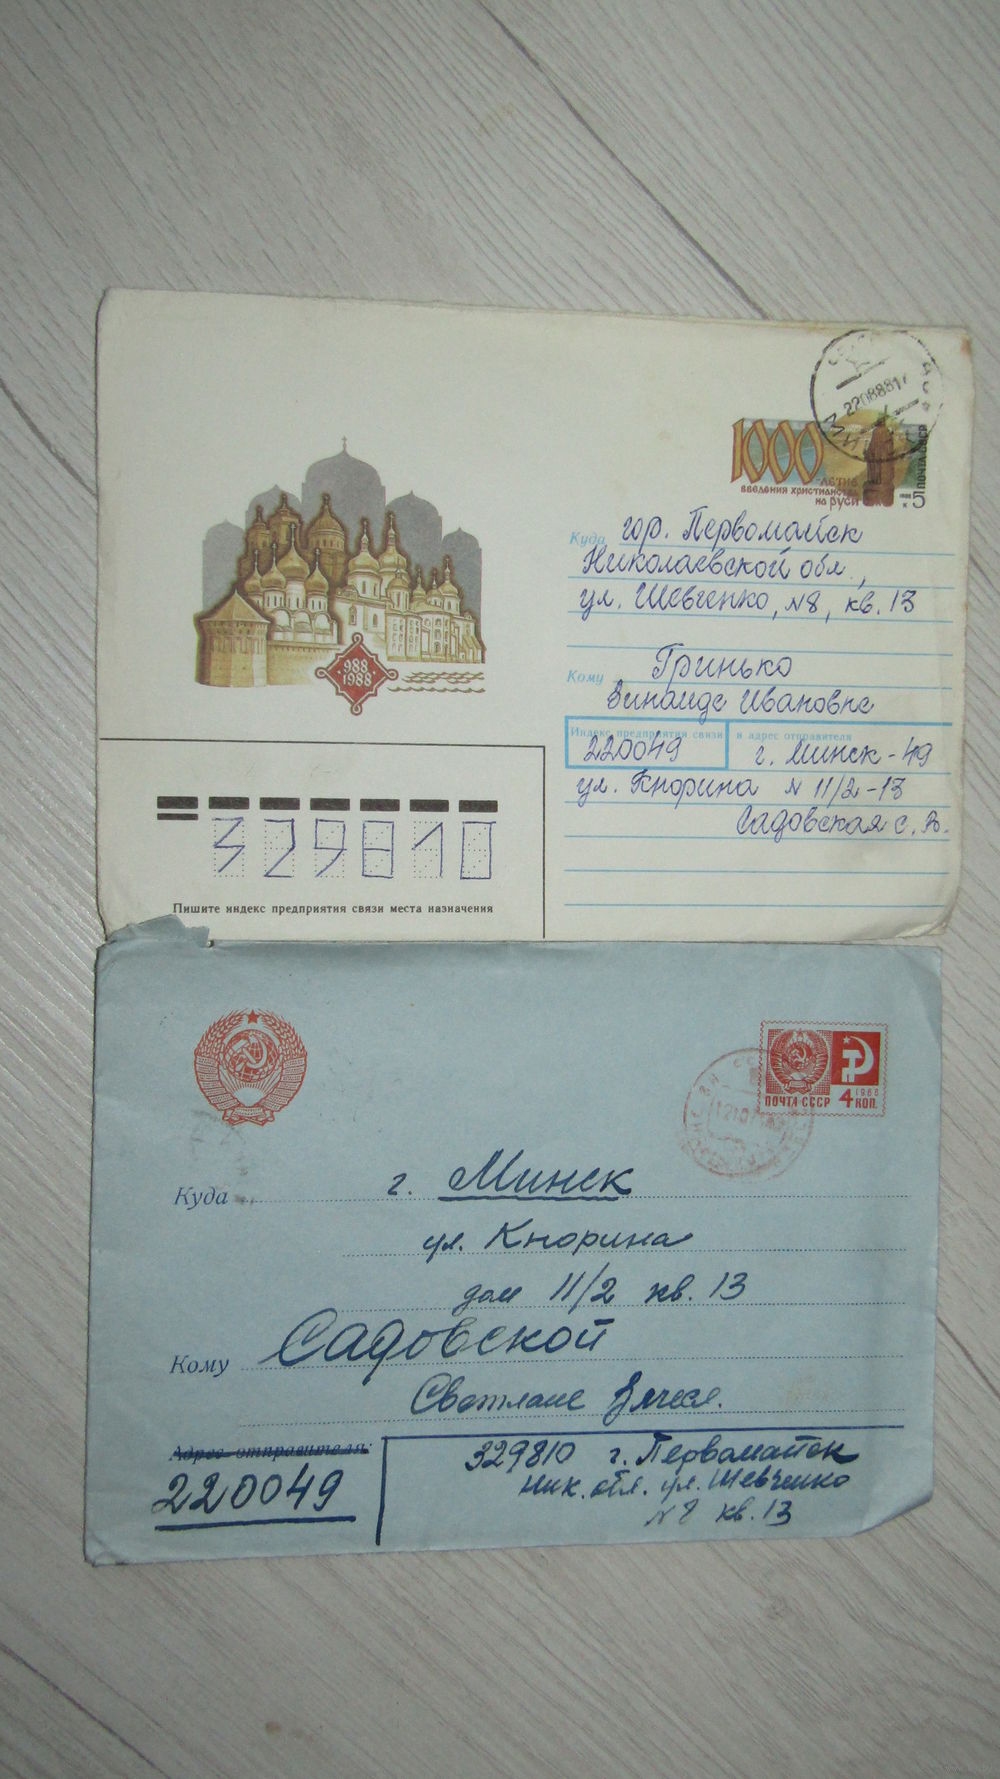 22088817
1000
-ЛЕТИЕ
введения христианства
на руси
1988
5 к
ПОЧТА СССР
988
1988
Куда гор. Первомайск
Николаевской обл.,
ул. Шевченко, N8, кв. 13
Кому Гринько
Зинаиде Ивановне
Индекс предприятия связи и адрес отправителя
220049 г. Минск-49
ул. Кнорина N 11/2-13
Садовская С. В.
329810
Пишите индекс предприятия связи места назначения
ПОЧТА СССР 4 КОП.
1966
Куда г. Минск
ул. Кнорина
дом 11/2 кв. 13
Кому Садовской
Светлане Вячесл.
Адрес отправителя:
220049
329810 г. Первомайск
Ник. обл. ул. Шевченко
N 8 кв. 13